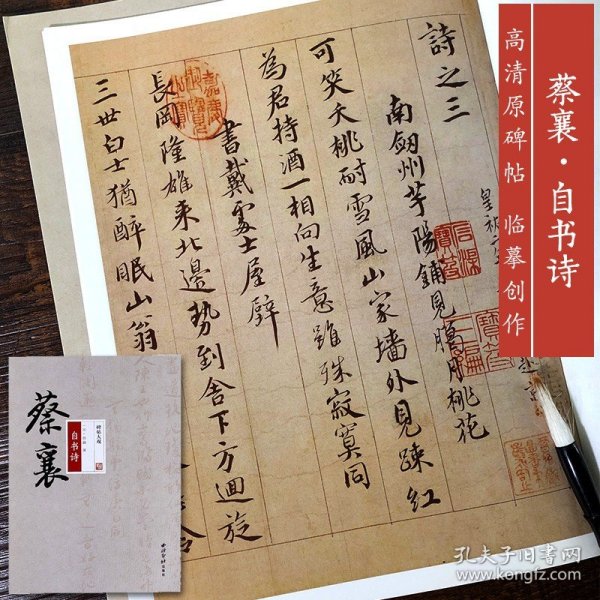 蔡襄·自书诗
高清原碑帖 临摹创作
詩之三
皇祐二年
南劔州芋陽鋪見臘月桃花
可笑夭桃耐雪風山家墻外見踈紅
為君持酒一相向生意雖殊寂寞同
書戴處士屋壁
長岡隆雄來北邊勢到舍下方迴旋
三世白士猶醉眠山翁
蔡襄
自书诗
碑帖大观
西泠印社出版社
孔夫子旧书网
www.kongfz.com